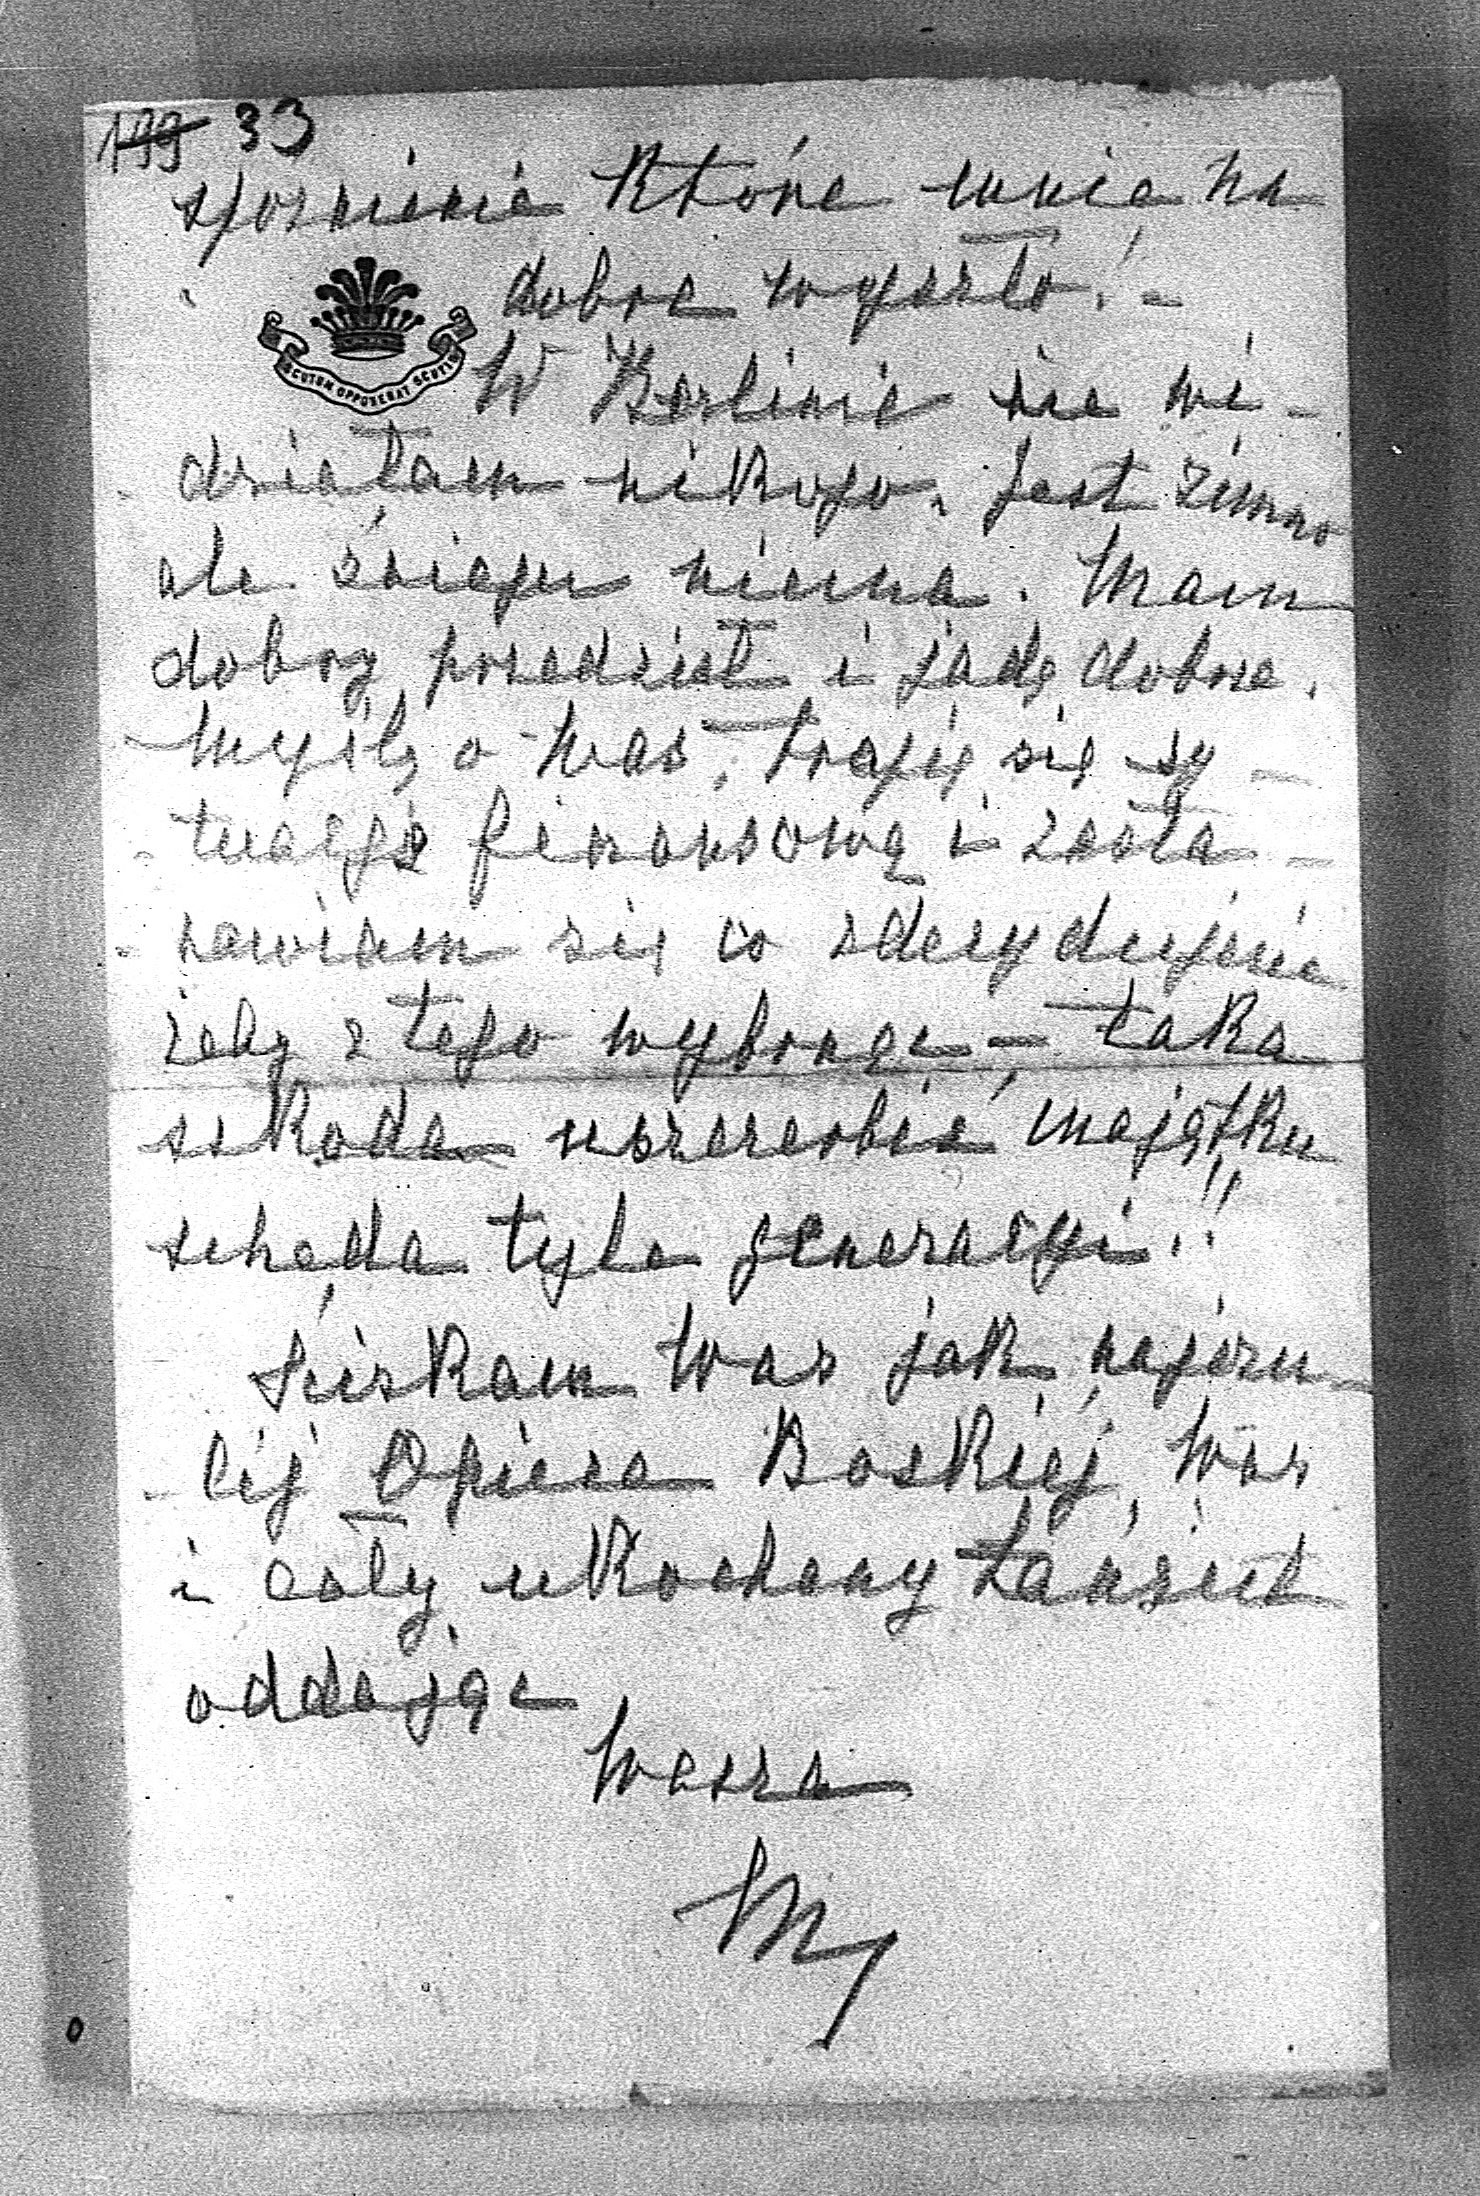 199 33
spóźnienie które mnie na
dobre wyszło! -
SCUTUM OPPONEBAT SCUTIS
W Berlinie nie wi-
działam nikogo. Jest zimno
ale śniegu niema. Mam
dobry przedział i jadę dobrze.
Myślę o Was, trapię się sy-
tuacją finansową i zasta-
nawiam się co zdecydujecie
żeby z tego wybrnąć - taka
szkoda uszczerbić majątku
scheda tyle generacyi!!
Ściskam Was jak najczu-
lij Opiece Boskiej Was
i cały ukochany Łańcut
oddając
Wasza
M